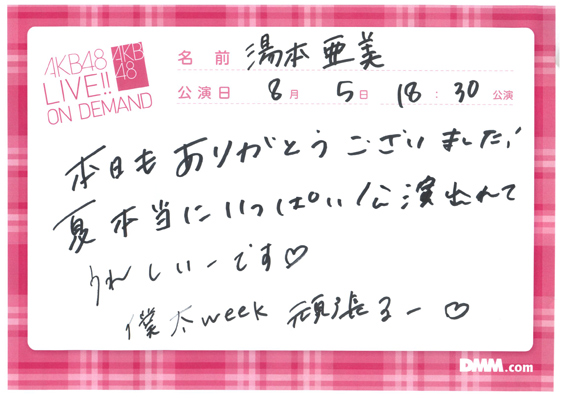 AKB48
LIVE!!
ON DEMAND
AKB
48
名前 湯本亜美
公演日 8月 5日 18:30 公演
本日もありがとうございました!
夏本当にいっぱい公演出れて
うれしいーです♡
僕太week 頑張るー♡
DMM.com